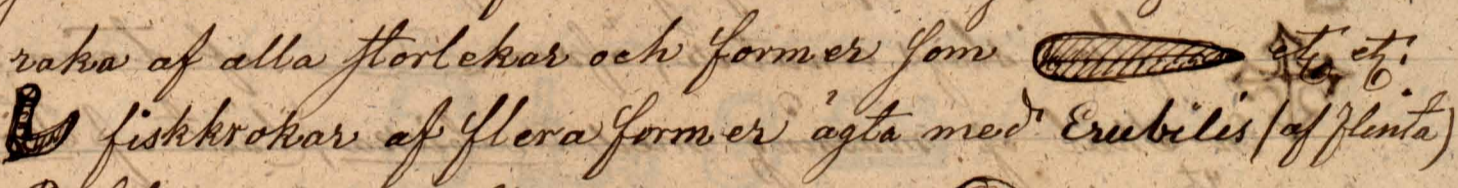 raka af alla storlekar och former som etc, etc:
fiskkrokar af flera former ägta med Erubilis (af flinta)